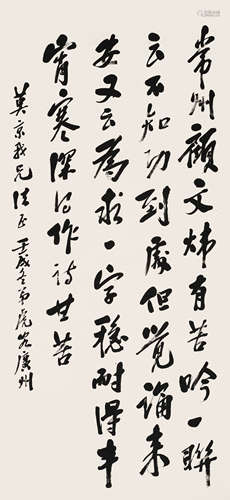 常州顧文煒有苦吟一聯
云不知功到處但覺誦來
安又云為求一字穩耐得半
宵寒深得作詩甘苦
京兄法正壬戌冬弟虎廣州